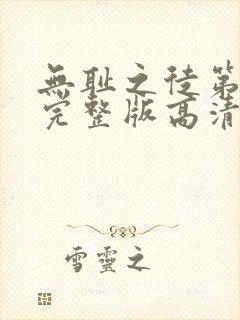 無耻之徒第
完整版高清
雪靈之